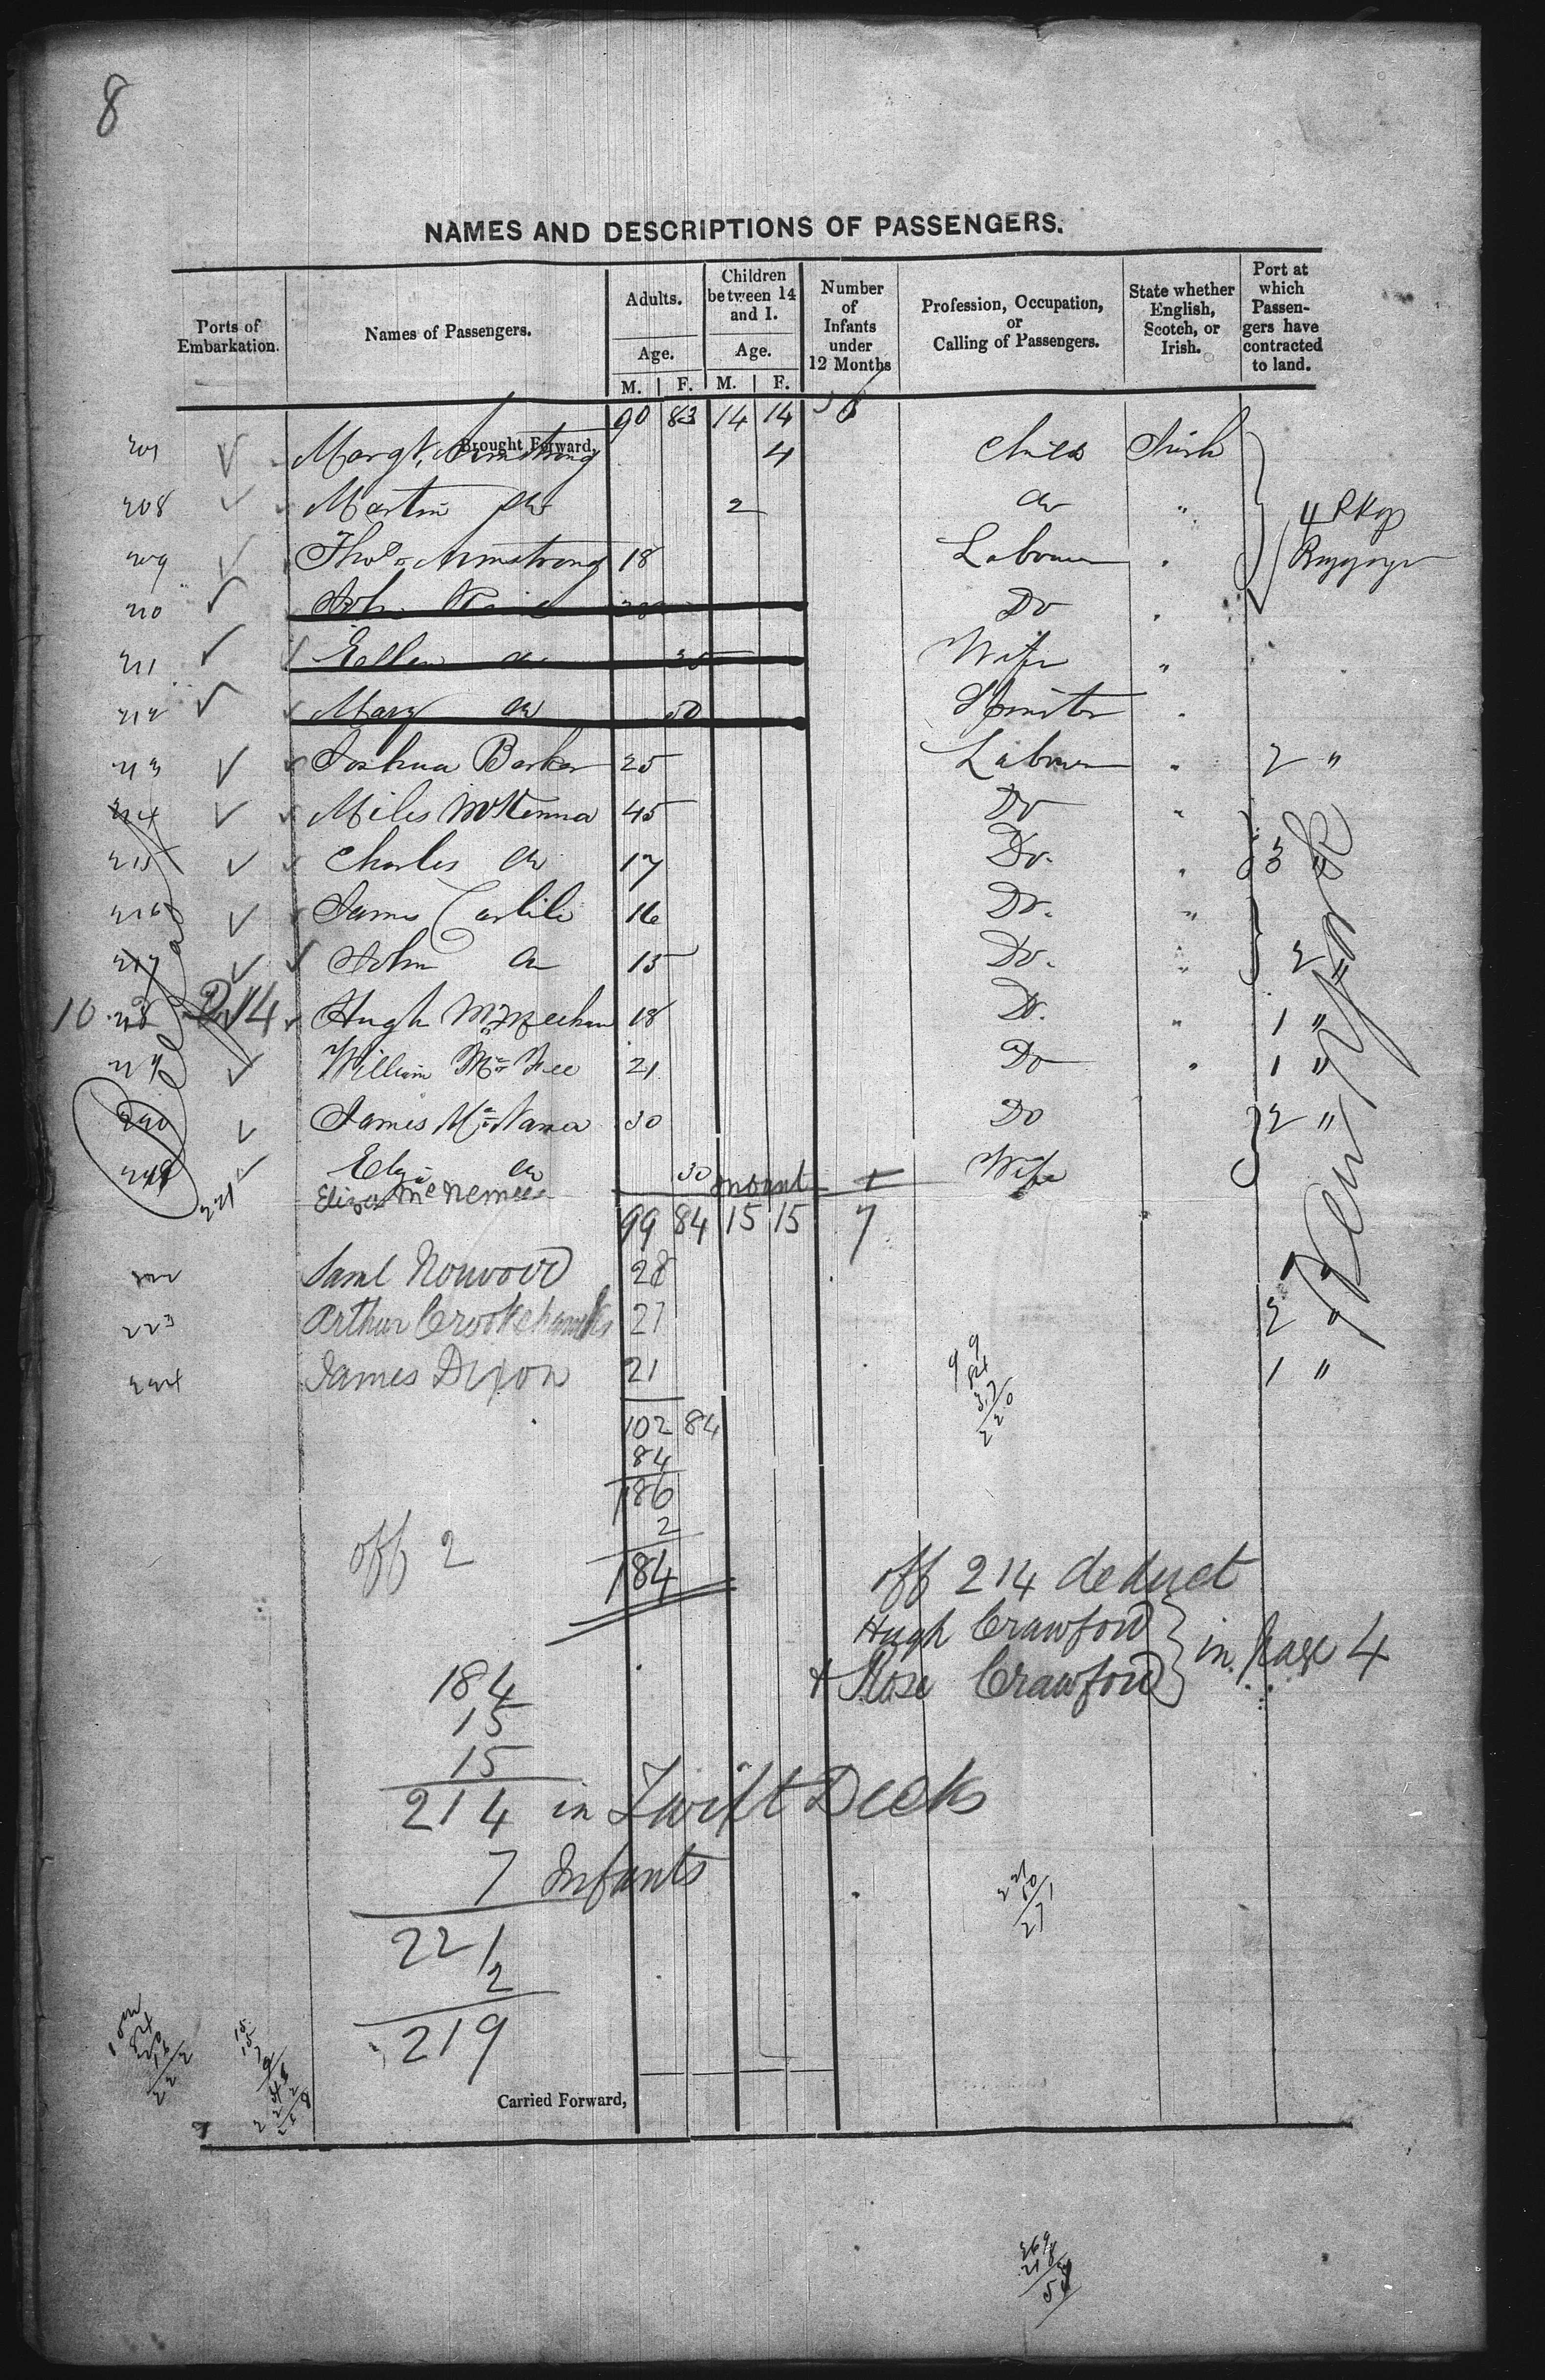 8
NAMES AND DESCRIPTIONS OF PASSENGERS.
Ports of Embarkation. Names of Passengers. Adults. Age. M. F. Children between 14 and 1. Age. M. F. Number of Infants under 12 Months Profession, Occupation, or Calling of Passengers. State whether English, Scotch, or Irish. Port at which Passengers have contracted to land.
Brought Forward, 90 83 14 14 6
Margt. Armstrong 4 Child Irish
208 Martin Do 2 Do " 4 Pkgs
209 Thos Armstrong 18 Labourer " Baggage
210 John Do "
211 Ellen Do 35 Wife "
212 Mary Do 50 Spinster "
213 Joshua Barker 25 Labourer " 2 "
214 Miles McKenna 45 Do "
215 Charles Do 17 Do. " 3
216 James Carlile 16 Do. "
217 John Do 15 Do. " 2 "
10 218 214 Hugh McMeekan 18 Do. " 1 "
William McFee 21 Do " 1 "
220 James 30 Do 2 "
221 Eliza Do 30 Infant 1 Wife
Eliza
99 84 15 15 7
Belfast
New York
222 Saml Norwood 28
223 Arthur Crookshanks 21 2 "
224 James Dixon 21 1 "
102 84
84
186
off 2 2
184
off 214 deduct
Hugh Crawford
+ Rose Crawford in Page 4
184
15
15
214 in Twixt Decks
7 Infants
221
2
219
Carried Forward,